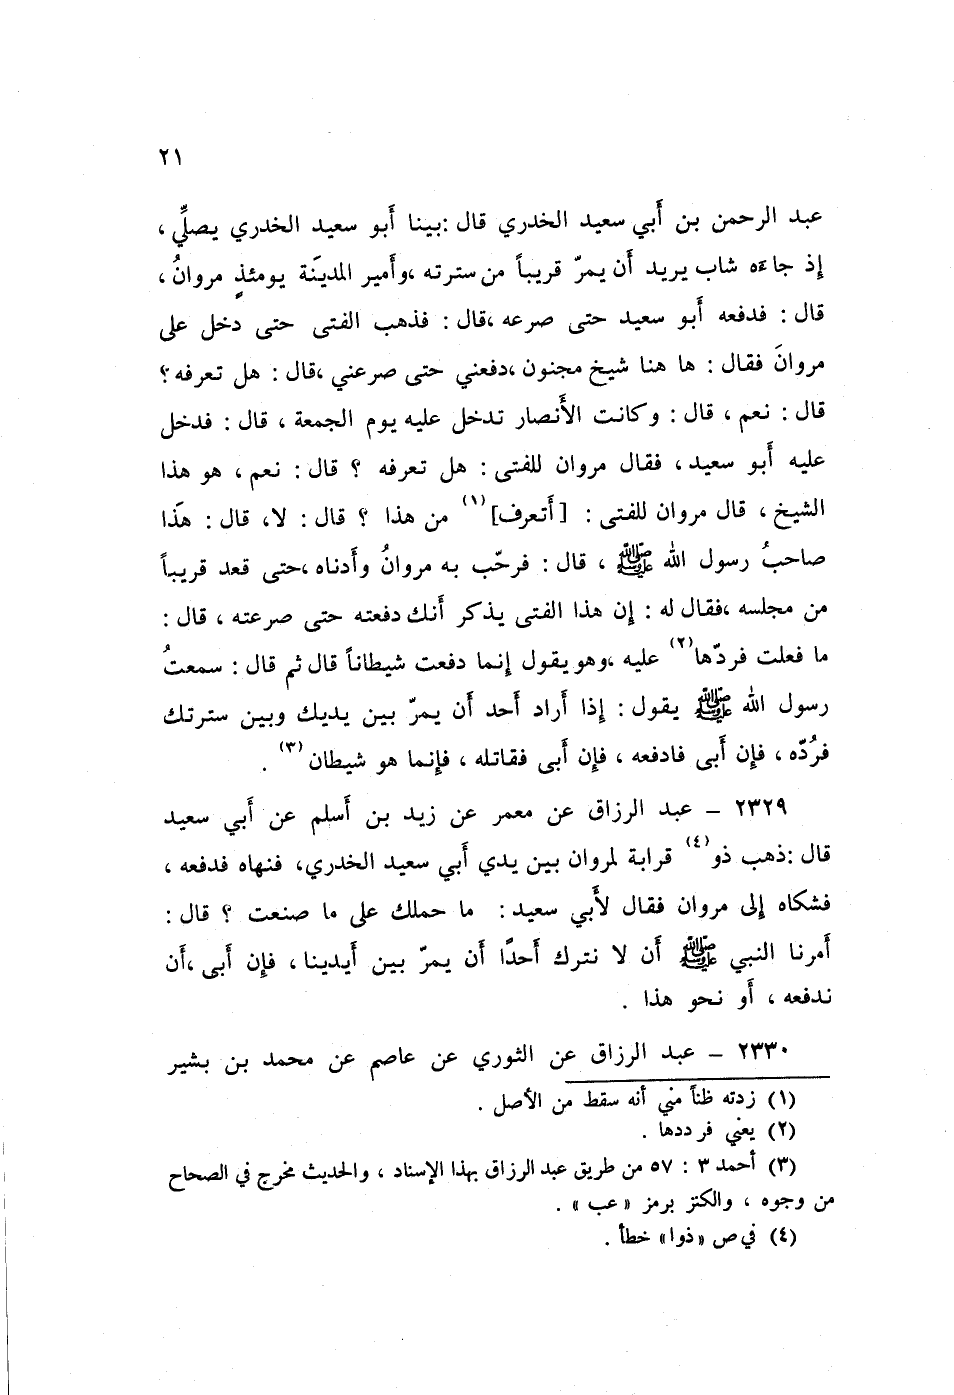 ٢١
عبد الرحمن بن أَبي سعيد الخدري قال :بينا أَبو سعيد الخدري يصلِّي ،
إِذ جاءَه شاب يريد أَن يمرّ قريباً من سترته ،وأَمير المدينَة يومئذٍ مروانُ ،
قال : فدفعه أَبو سعيد حتى صرعه ،قال : فذهب الفتى حتى دخل على
مروانَ فقال : ها هنا شيخ مجنون ،دفعني حتى صرعني ،قال : هل تعرفه؟
قال : نعم ، قال : وكانت الأَنصار تدخل عليه يوم الجمعة ، قال : فدخل
عليه أَبو سعيد ، فقال مروان للفتى : هل تعرفه ؟ قال : نعم ، هو هذا
الشيخ ، قال مروان للفتى : [أَتعرف](١) من هذا ؟ قال : لا، قال : هَذا
صاحبُ رسول الله ﷺ ، قال : فرحّب به مروانُ وأَدناه ،حتى قعد قريباً
من مجلسه ،فقال له : إِن هذا الفتى يذكر أَنك دفعته حتى صرعته ، قال :
ما فعلت فردّها(٢) عليه ،وهو يقول إِنما دفعت شيطاناً قال ثم قال : سمعتُ
رسول الله ﷺ يقول : إِذا أَراد أَحد أَن يمرّ بين يديك وبين سترتك
فرُدّه ، فإِن أَبى فادفعه ، فإِن أَبى فقاتله ، فإِنما هو شيطان (٣) .
٢٣٢٩ – عبد الرزاق عن معمر عن زيد بن أَسلم عن أَبي سعيد
قال :ذهب ذو(٤) قرابة لمروان بين يدي أَبي سعيد الخدري، فنهاه فدفعه ،
فشكاه إِلى مروان فقال لأَبي سعيد : ما حملك على ما صنعت ؟ قال :
أَمرنا النبي ﷺ أَن لا نترك أَحدًا أَن يمرّ بين أَيدينا ، فإِن أَبى ،أَن
ندفعه ، أَو نحو هذا .
٢٣٣٠ – عبد الرزاق عن الثوري عن عاصم عن محمد بن بشير
(١) زدته ظناً مني أنه سقط من الأصل .
(٢) يعني فرددها .
(٣) أحمد ٣ : ٥٧ من طريق عبد الرزاق بهذا الإسناد ، والحديث مخرج في الصحاح
من وجوه ، والكنز برمز «عب» .
(٤) في ص «ذوا» خطأ .